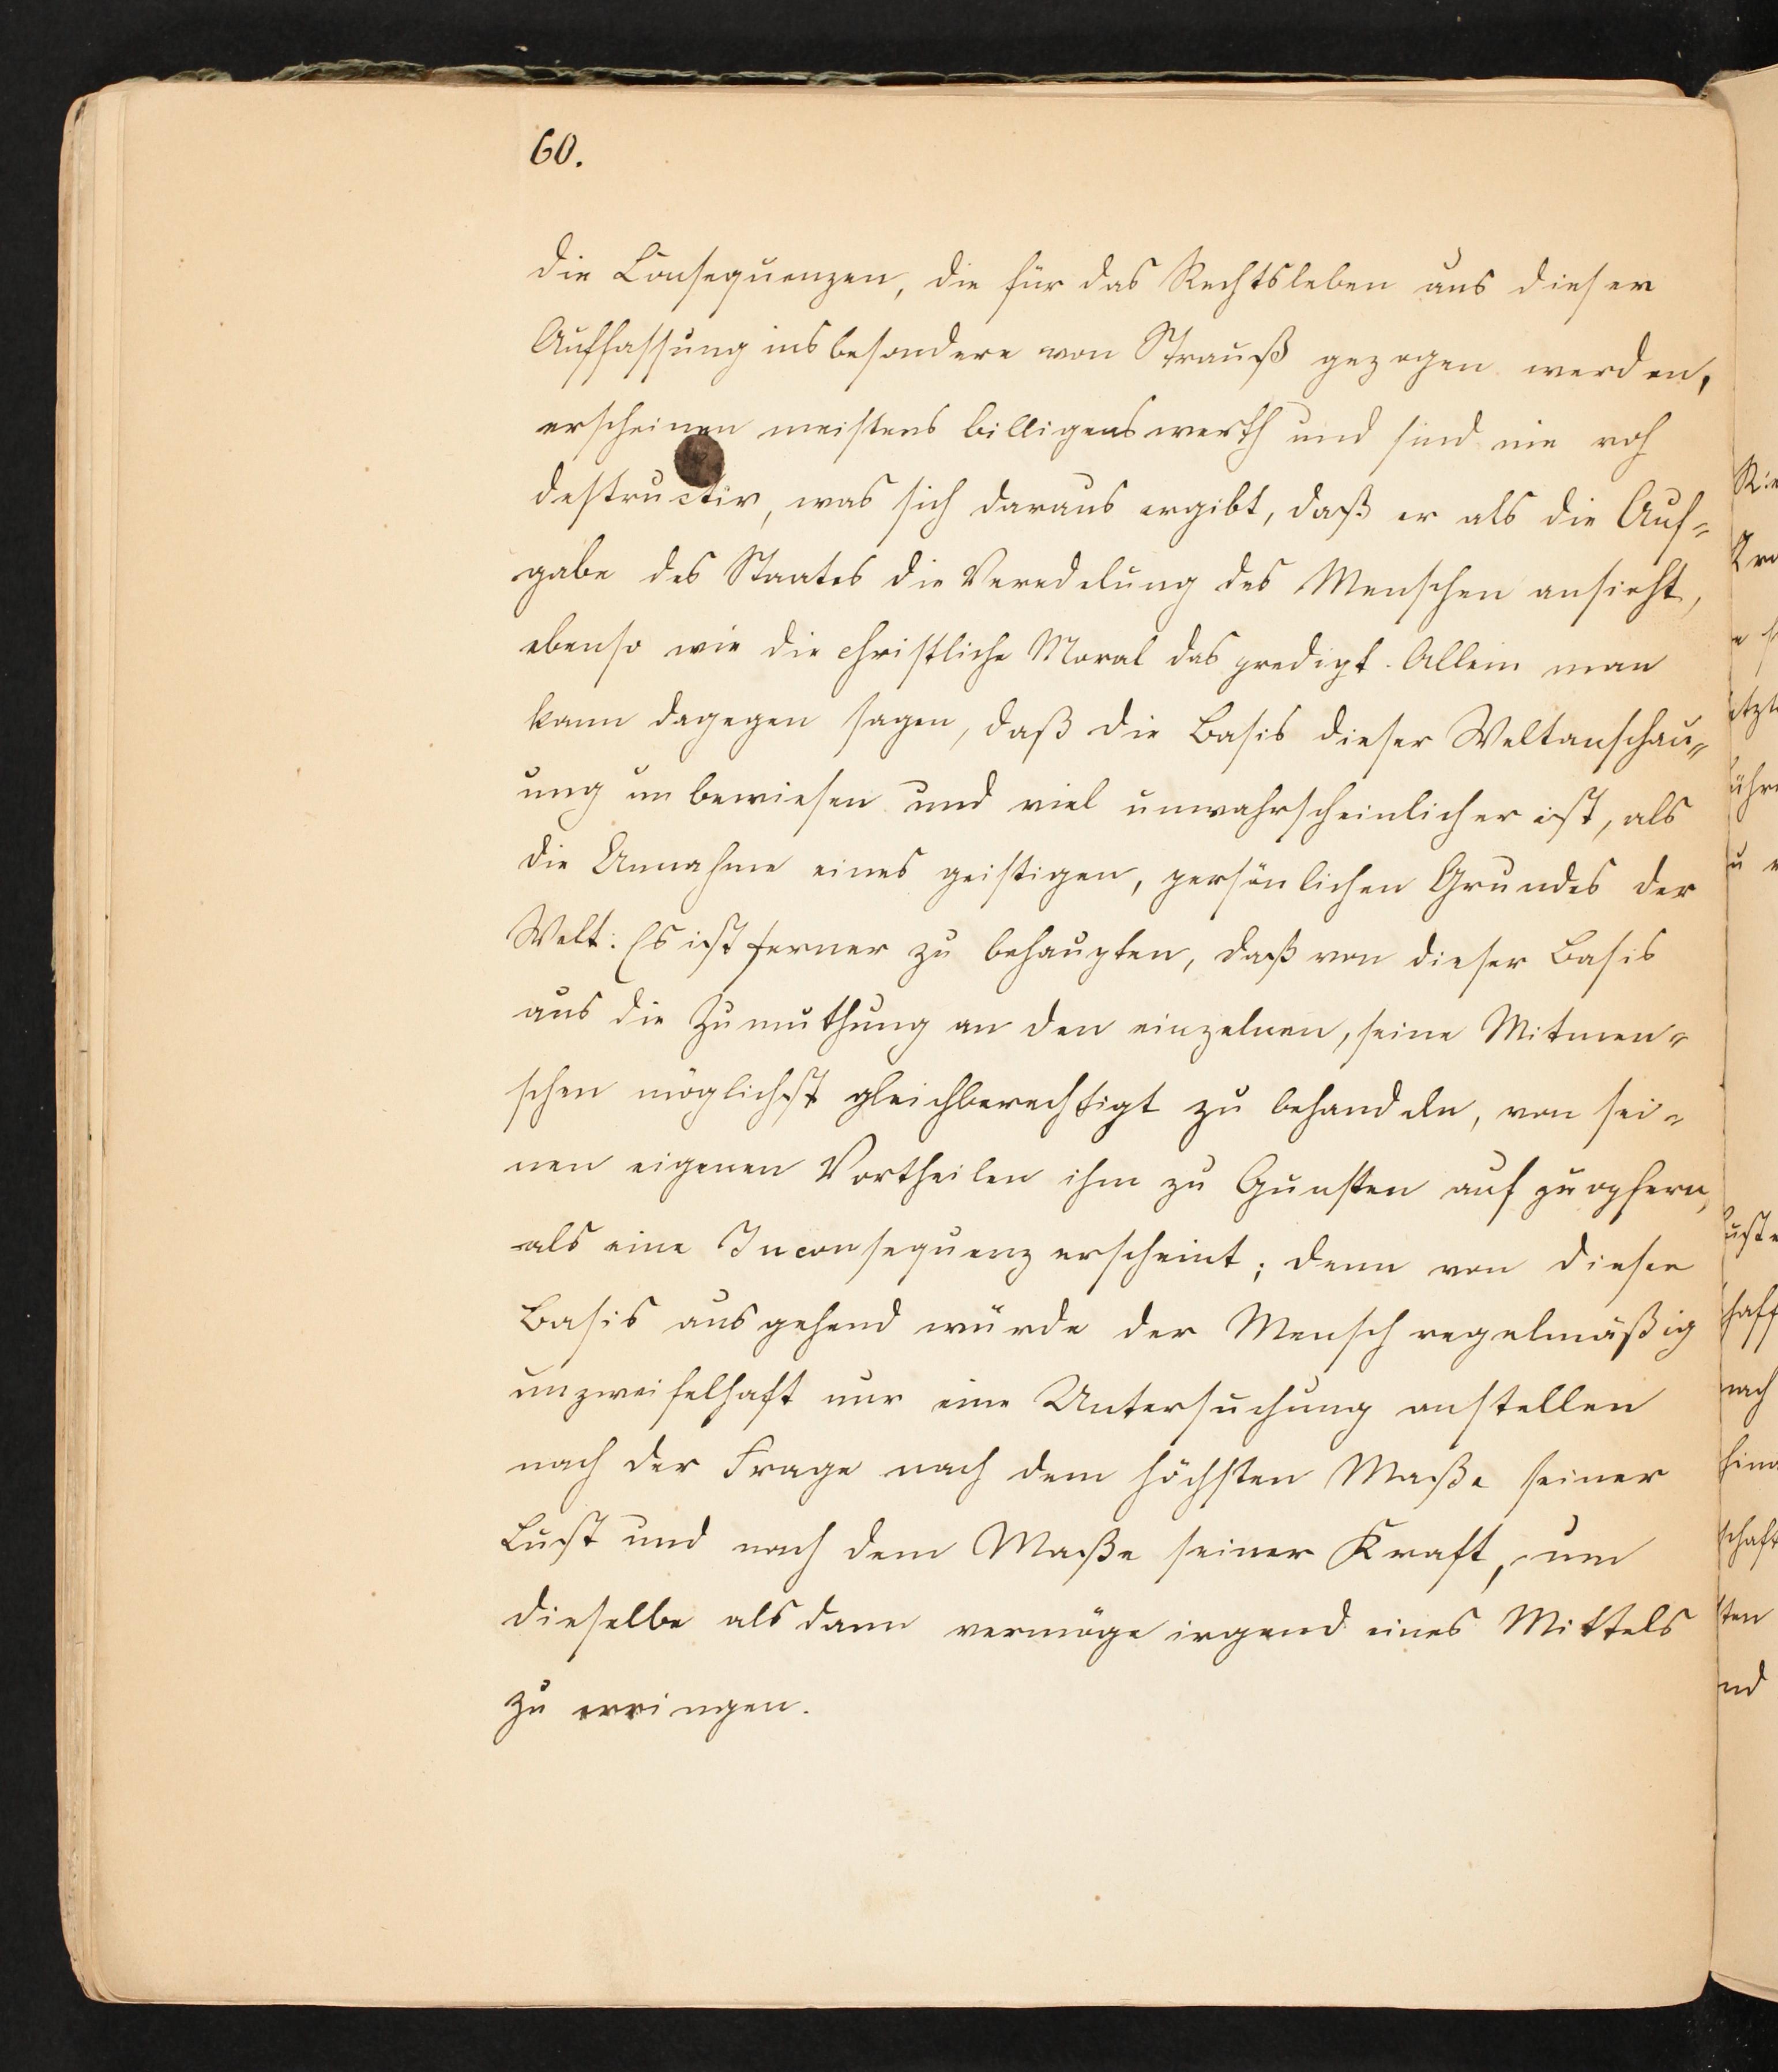 60.
die Consequenzen, die für das Rechtsleben aus dieser
Auffassung insbesondere von Strauß gezogen werden,
erscheinen meistens billigenswerth und sind nie roh
destructiv, was sich daraus ergibt, daß er als die Auf-
gabe des Staates die Veredelung des Menschen ansieht,
ebenso wie die christliche Moral das predigt. Allein man
kann dagegen sagen, daß die Basis dieser Weltanschau-
ung unbewiesen und viel unwahrscheinlicher ist, als
die Annahme eines geistigen, persönlichen Grundes der
Welt. Es ist ferner zu behaupten, daß von dieser Basis
aus die Zumuthung an den einzelnen, seine Mitmen-
schen möglichst gleichberechtigt zu behandeln, von sei-
nen eigenen Vortheilen ihm zu Gunsten aufzuopfern,
als eine Inconsequenz erscheint; denn von dieser
Basis ausgehend würde der Mensch regelmäßig
unzweifelhaft nur eine Untersuchung anstellen
nach der Frage nach dem höchsten Maße seiner
Lust und nach dem Maße seiner Kraft, um
dieselbe alsdann vermöge irgend eines Mittels
zu erringen.